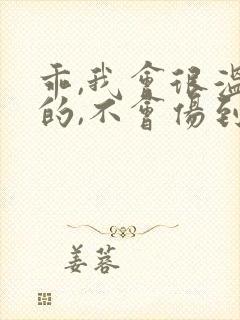 乖,我會很溫
的,不會傷到
姜蓉